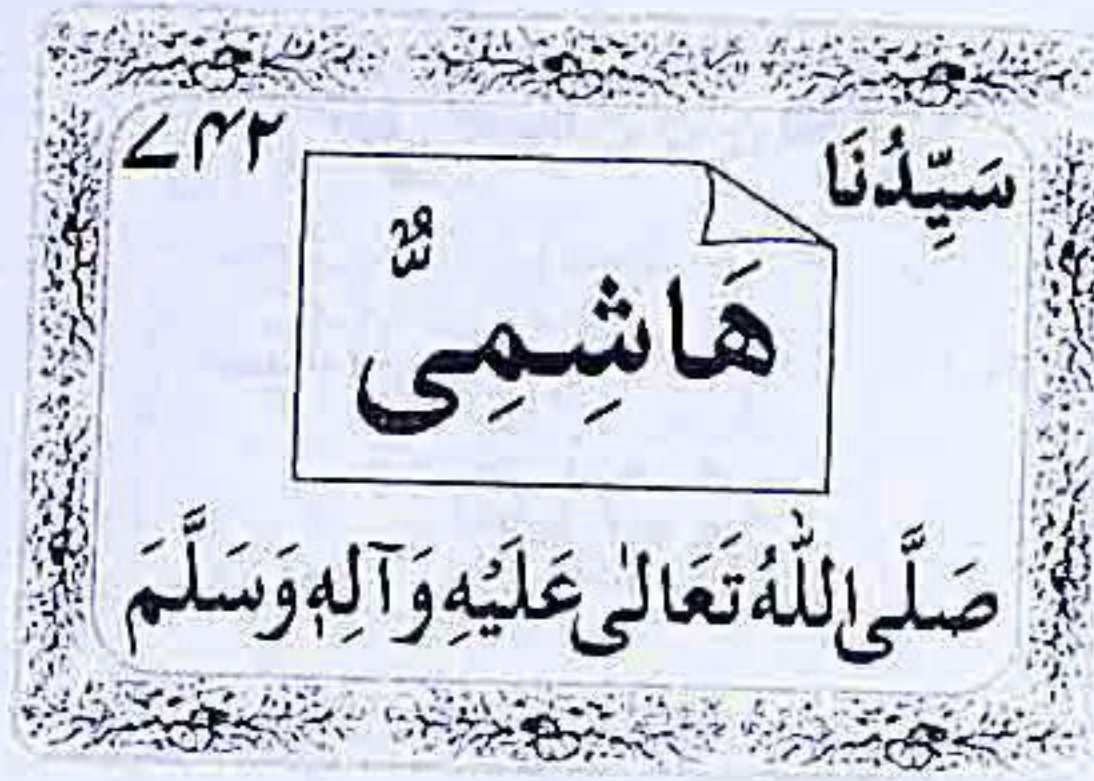 سَيِّدُنَا ۷۴۲
هَاشِمِيٌّ
صَلَّى اللّٰهُ تَعَالٰى عَلَيْهِ وَآلِهٖ وَسَلَّمَ